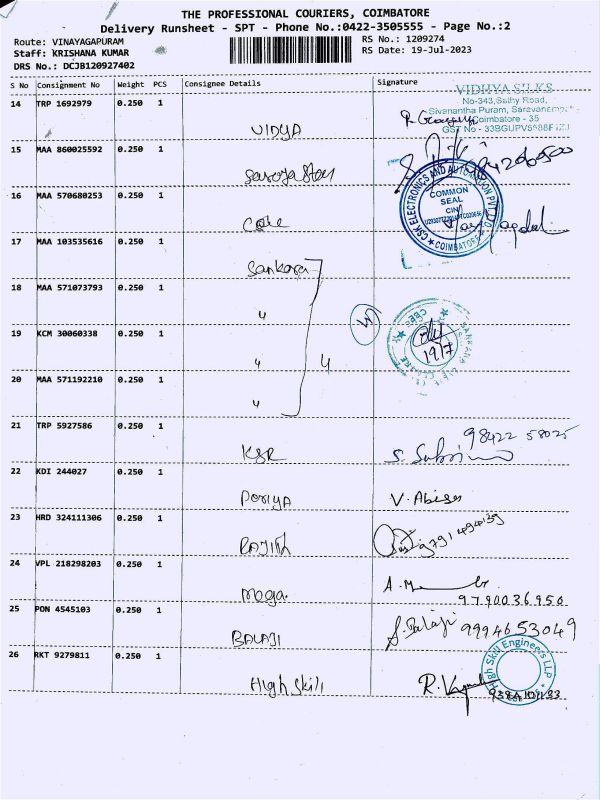 THE PROFESSIONAL COURIERS, COIMBATORE
Delivery Runsheet - SPT - Phone No.:0422-3505555 - Page No.:2
Route: VINAYAGAPURAM
Staff: KRISHANA KUMAR
DRS No.: DCJB120927402
RS No.: 1209274
RS Date: 19-Jul-2023
S No Consignment No Weight PCS Consignee Details Signature
VIDHYA SILKS
No-343,Sathy Road,
Sivanantha Puram, Saravanampatti
Coimbatore - 35
14 TRP 1692979 0.250 1
VIDYA
15 MAA 860025592 0.250 1
16 MAA 570680253 0.250 1
CSK ELECTRONICS AND AUTOMATION PVT LTD
COMMON
SEAL
CIN
COIMBATORE
17 MAA 103535616 0.250 1
Sankara
18 MAA 571073793 0.250 1
"
19 KCM 30060338 0.250 1
"
4
19/7
20 MAA 571192210 0.250 1
"
21 TRP 5927586 0.250 1
KSR
98422 58025
22 KDI 244027 0.250 1
V. Abi
23 HRD 324111306 0.250 1
24 VPL 218298203 0.250 1
Moga
A.M
9790036950
25 PON 4545103 0.250 1
BALAJI
S. Balaji 9994653049
26 RKT 9279811 0.250 1
High Skill
High Skill Engineers LLP